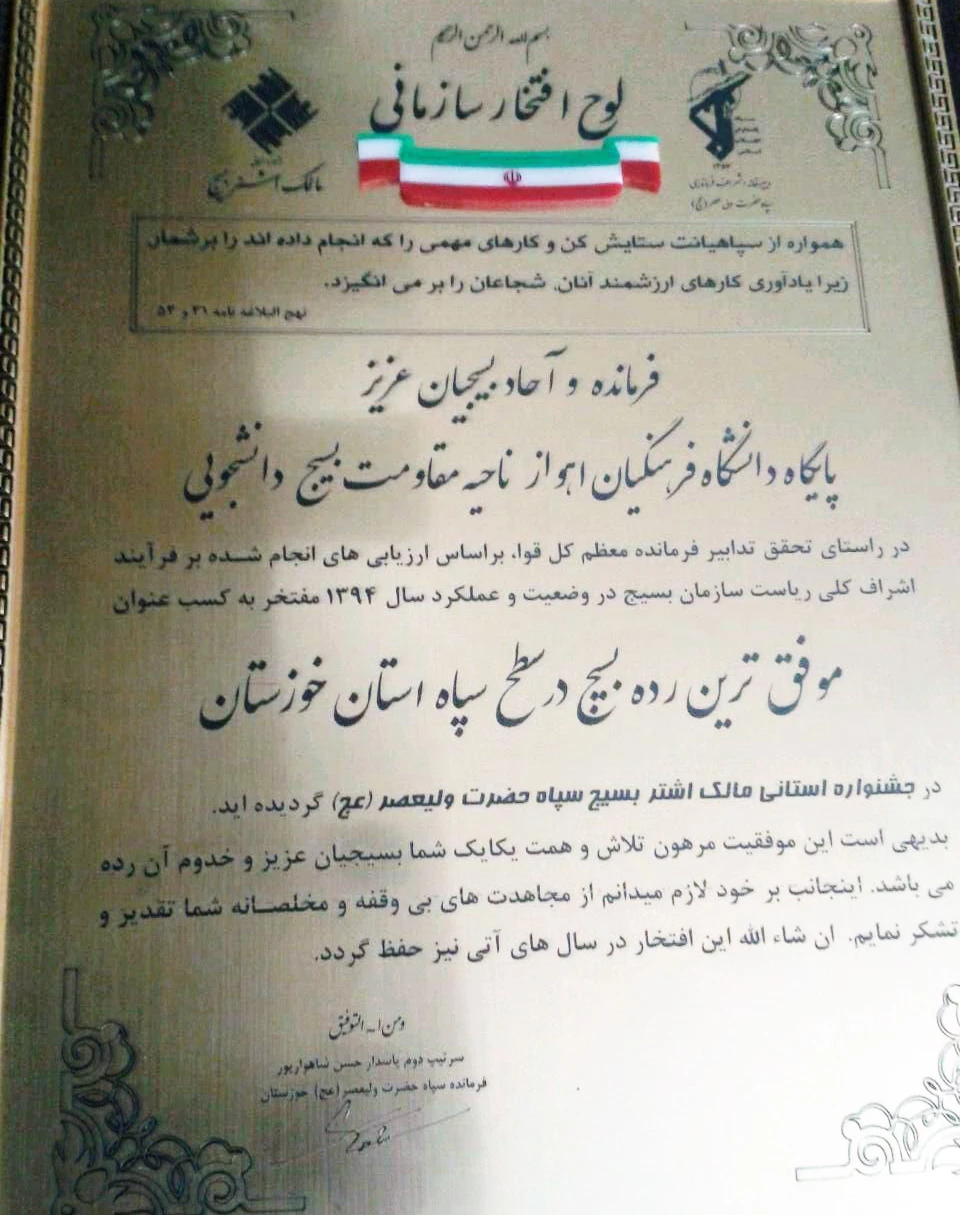 بسم الله الرحمن الرحیم
لوح افتخار سازمانی
مالک اشتر بسیج
سپاه حضرت ولی عصر (عج)
همواره از سپاهیانت ستایش کن و کارهای مهمی را که انجام داده اند را برشمار
زیرا یادآوری کارهای ارزشمند آنان، شجاعان را بر می انگیزد.
نهج البلاغه نامه ۳۱ و ۵۳
فرمانده و آحاد بسیجیان عزیز
پایگاه دانشگاه فرهنگیان اهواز ناحیه مقاومت بسیج دانشجویی
در راستای تحقق تدابیر فرمانده معظم کل قوا، براساس ارزیابی های انجام شده بر فرآیند
اشراف کلی ریاست سازمان بسیج در وضعیت و عملکرد سال ۱۳۹۴ مفتخر به کسب عنوان
موفق ترین رده بسیج در سطح سپاه استان خوزستان
در جشنواره استانی مالک اشتر بسیج سپاه حضرت ولیعصر (عج) گردیده اید.
بدیهی است این موفقیت مرهون تلاش و همت یکایک شما بسیجیان عزیز و خدوم آن رده
می باشد. اینجانب بر خود لازم میدانم از مجاهدت های بی وقفه و مخلصانه شما تقدیر و
تشکر نمایم. ان شاء الله این افتخار در سال های آتی نیز حفظ گردد.
ومن ا... التوفیق
سرتیپ دوم پاسدار حسن شاهوارپور
فرمانده سپاه حضرت ولیعصر (عج) خوزستان